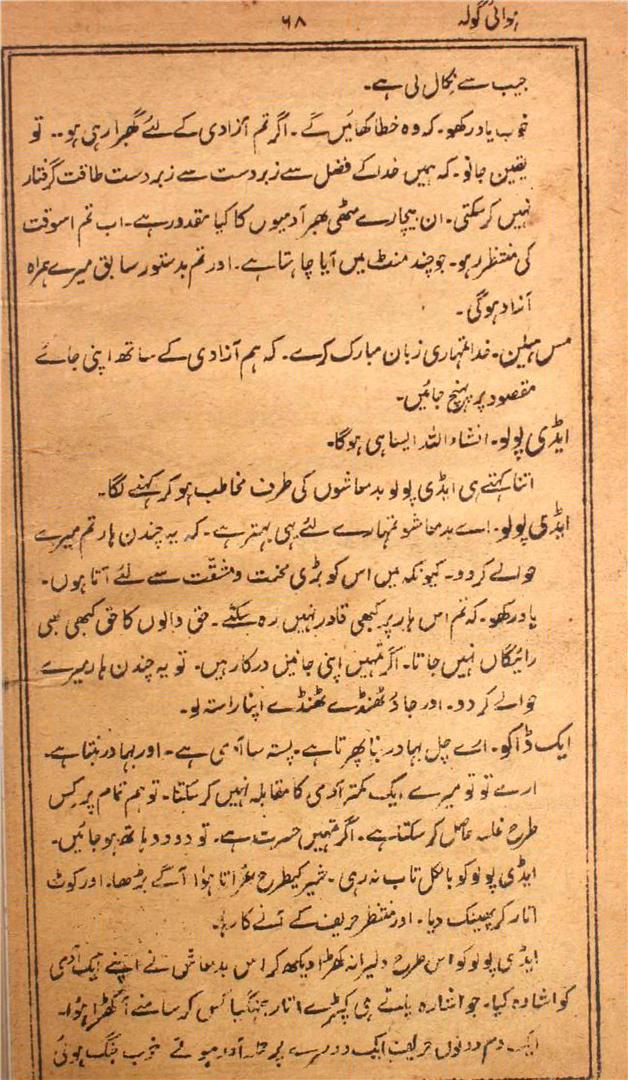 ہوائی گولہ ۶۸
جیب سے نکال لی ہے۔
خوب یاد رکھو۔ کہ وہ خطا کھائیں گے۔ اگر تم آزادی کے لئے گھبرا رہی ہو۔۔ تو
یقین جانو۔ کہ ہمیں خدا کے فضل سے زبردست سے زبردست طاقت گرفتار
نہیں کر سکتی۔ ان بیچارے مٹھی بھر آدمیوں کا کیا مقدور ہے۔ اب تم اسوقت
کی منتظر رہو۔ جو چند منٹ میں آیا چاہتا ہے۔ اور تم بدستور سابق میرے ہمراہ
آزاد ہوگی۔
مس ہیلین۔ خدا تمہاری زبان مبارک کرے۔ کہ ہم آزادی کے ساتھ اپنی جائے
مقصود پر پہنچ جائیں۔
ایڈی پولو۔ انشاء اللہ ایسا ہی ہوگا۔
اتنا کہتے ہی ایڈی پولو بدمعاشوں کی طرف مخاطب ہو کر کہنے لگا۔
ایڈی پولو۔ اے بدمعاشو تمہارے لئے یہی بہتر ہے۔ کہ یہ چندن ہار تم میرے
حوالے کر دو۔ کیونکہ میں اس کو بڑی محنت و مشقت سے لئے آتا ہوں۔
یاد رکھو۔ کہ تم اس ہار پر کبھی قادر نہیں رہ سکتے۔ حق والوں کا حق کبھی بھی
رائیگاں نہیں جاتا۔ اگر تمہیں اپنی جانیں درکار ہیں۔ تو یہ چندن ہار میرے
حوالے کر دو۔ اور جاؤ ٹھنڈے ٹھنڈے اپنا راستہ لو۔
ایک ڈاکو۔ ارے چل بہادر بنا پھرتا ہے۔ پستہ سا آدمی ہے۔ اور بہادر بنتا ہے۔
ارے تو تو میرے ایک کمتر آدمی کا مقابلہ نہیں کر سکتا۔ تو ہم تمام پر کس
طرح غلبہ حاصل کر سکتا ہے۔ اگر تمہیں حسرت ہے۔ تو دو دو ہاتھ ہو جائیں۔
ایڈی پولو کو بالکل تاب نہ رہی۔ شیر کیطرح غراتا ہوا آگے بڑھا۔ اور کوٹ
اتار کر پھینک دیا۔ اور منتظر حریف کے آنے کا رہا۔
ایڈی پولو کو اس طرح دلیرانہ کھڑا دیکھ کر اس بدمعاش نے اپنے ایک آدمی
کو اشارہ کیا۔ جو اشارہ پاتے ہی کپڑے اتار جھنگیا کس کر سامنے آ کھڑا ہوا۔
ایک دم دونوں حریف ایک دوسرے پر حملہ آور ہوئے خوب جنگ ہوئی